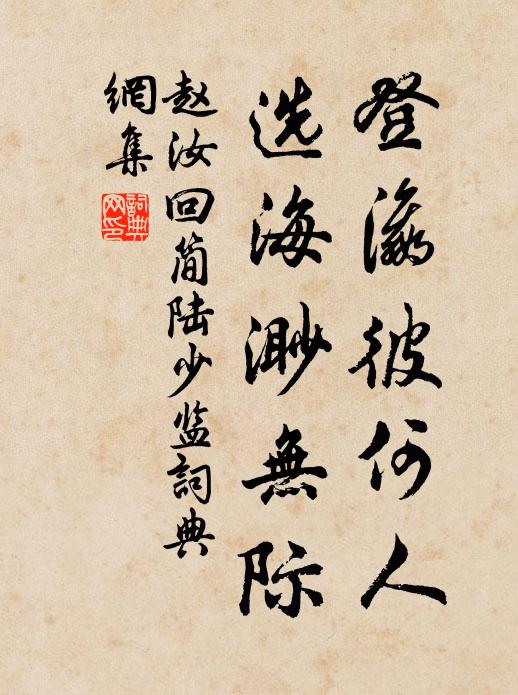 登瀛彼何人
选海渺無际
赵汝回简陆少监詞典
網集
詞典網印